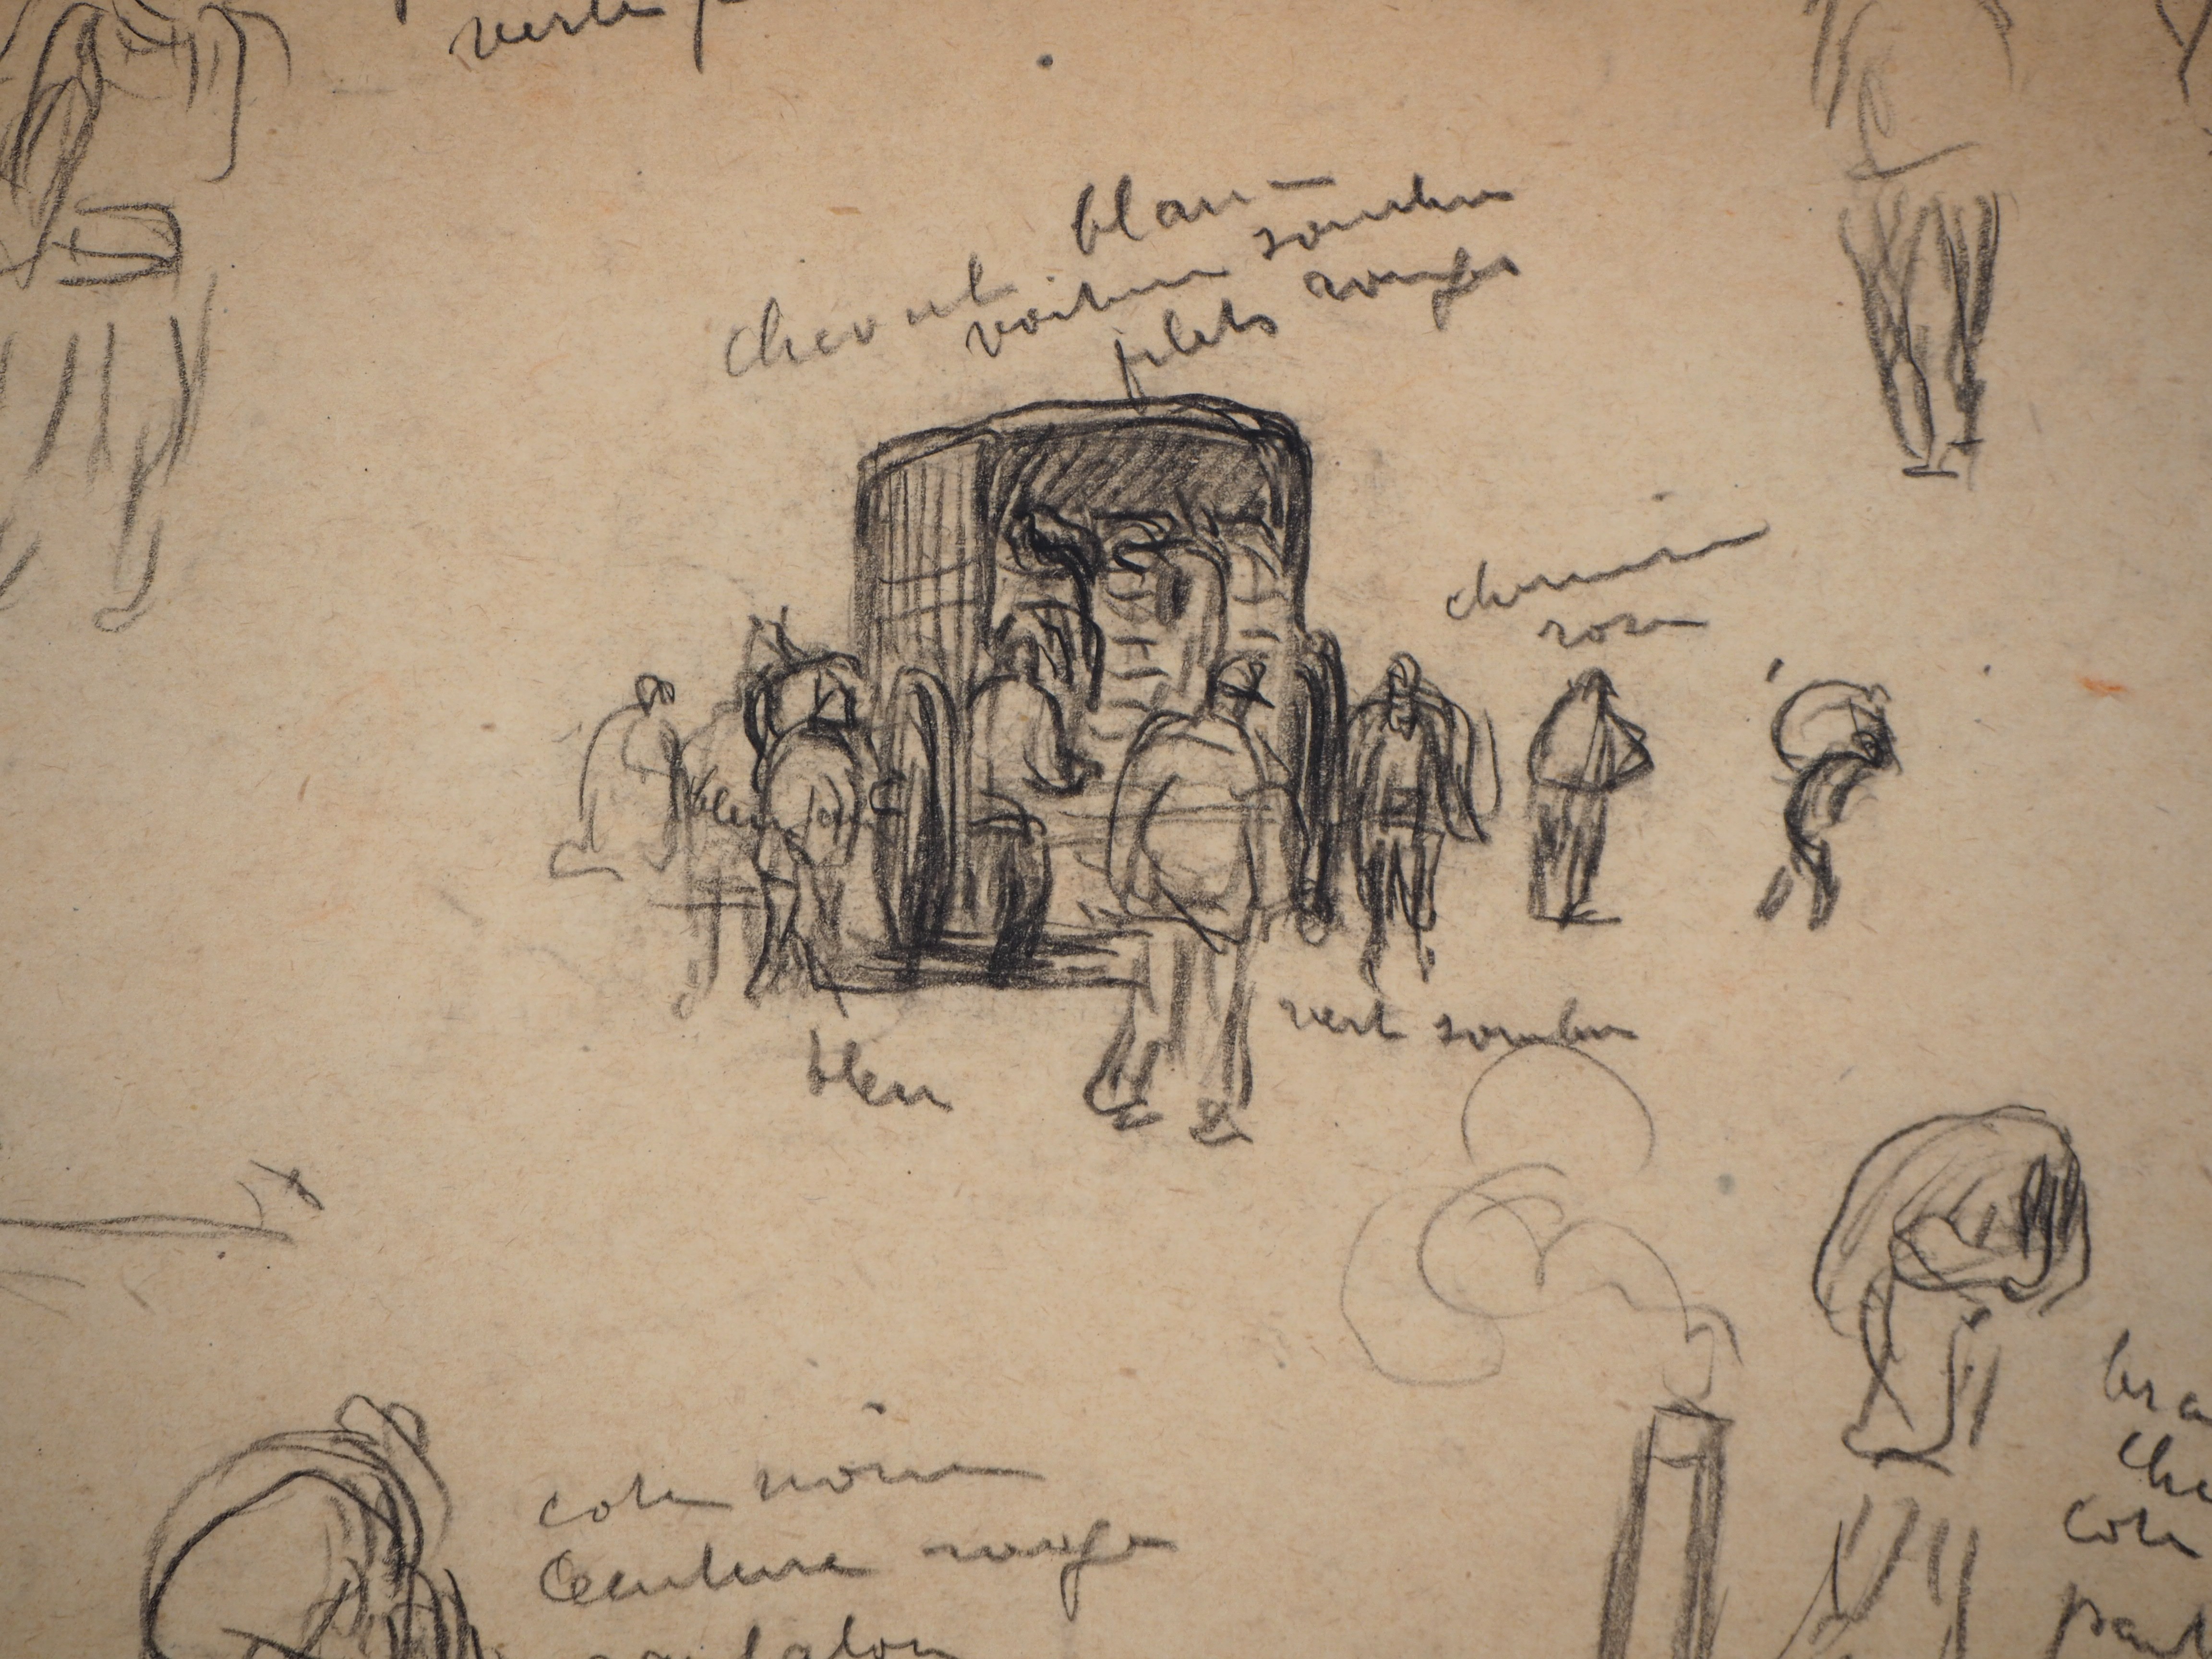 verte
blanc
cheval
voiture sombre
filets rouges
chemise
rose
bleu
vert sombre
bleu
cote noire
Ceinture rouge
pantalon
che
cote
pant